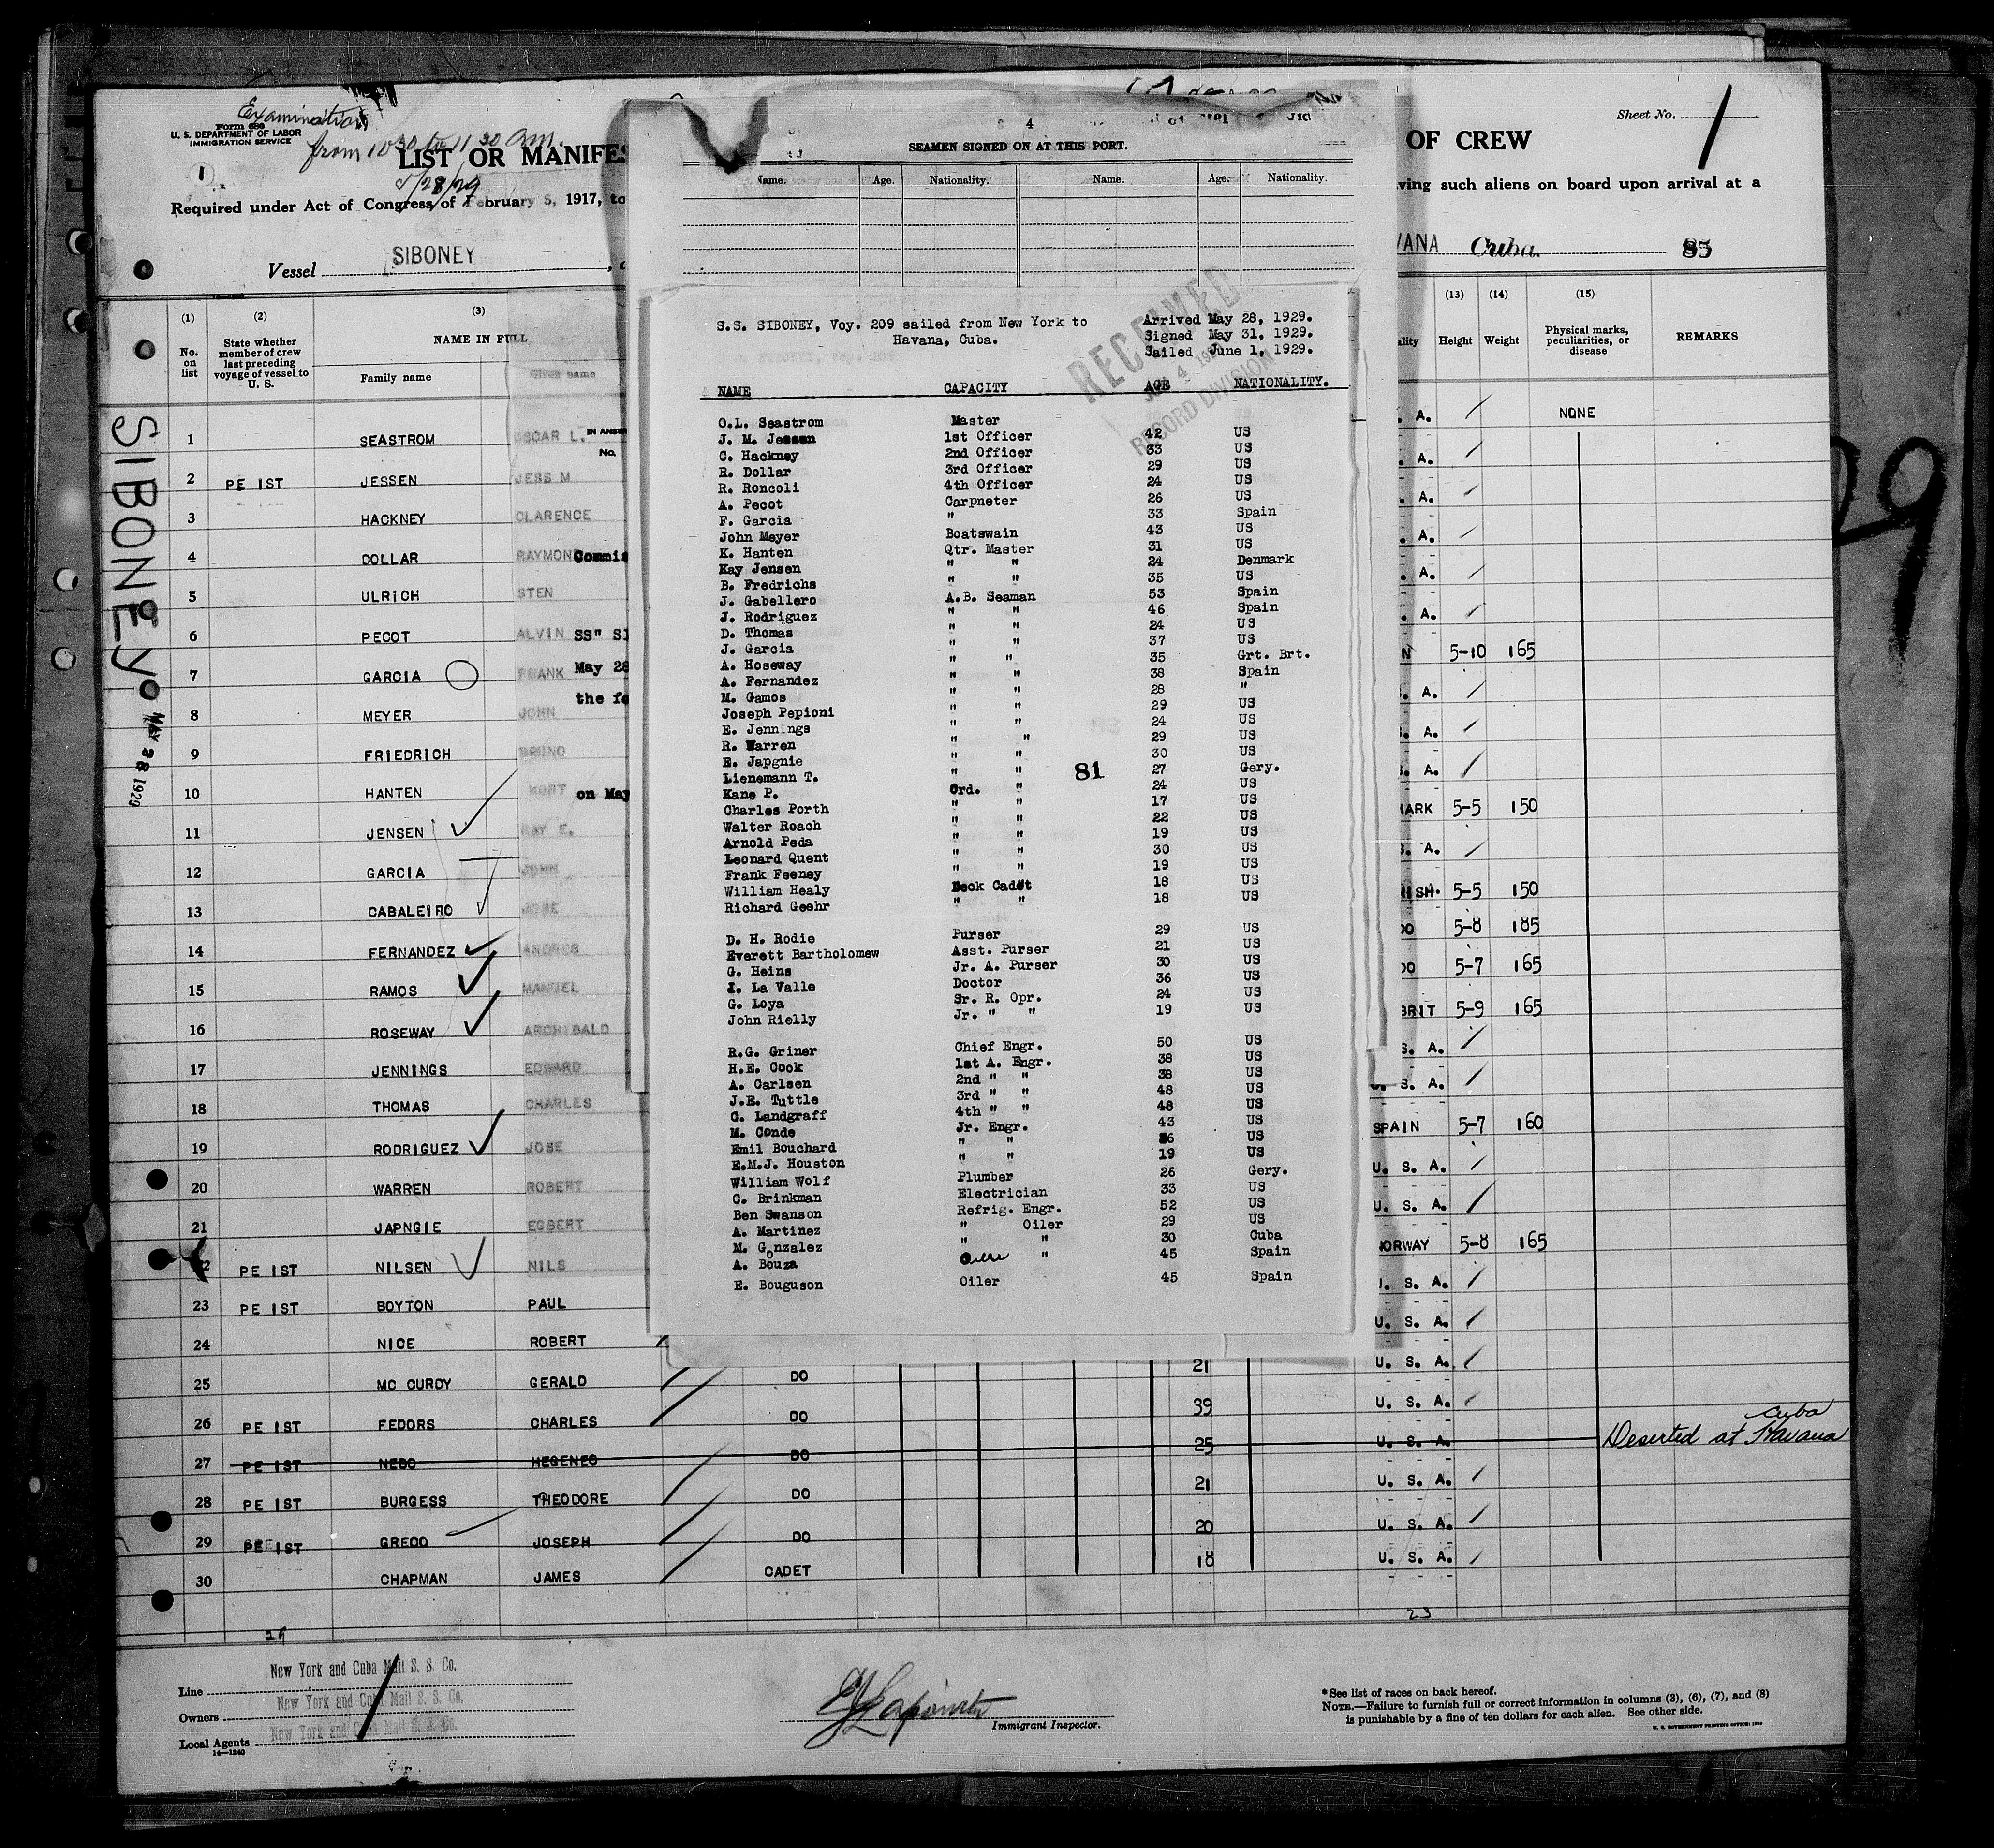 Examination
Form 680
U. S. DEPARTMENT OF LABOR
IMMIGRATION SERVICE
from 10 30 to 11 30 am.
5/28/29
1
LIST OR MANIFES
OF CREW
Sheet No. 1
Required under Act of Congress of February 5, 1917, to
ving such aliens on board upon arrival at a
Vessel SIBONEY
VANA Cuba. 85
(1) (2) (3) (13) (14) (15)
No. on list
State whether member of crew last preceding voyage of vessel to U. S.
NAME IN FULL
Family name
Given name
ality
Height
Weight
Physical marks, peculiarities, or disease
REMARKS
SIBONEY
MAY 28 1929
29
1 SEASTROM OSCAR L. . A. NONE
2 PE IST JESSEN JESS M . A.
3 HACKNEY CLARENCE . A.
4 DOLLAR RAYMOND . A.
5 ULRICH STEN . A.
6 PECOT ALVIN . A.
7 GARCIA FRANK N 5-10 165
8 MEYER JOHN . A.
9 FRIEDRICH BRUNO . A.
10 HANTEN KURT . A.
11 JENSEN KAY E. ARK 5-5 150
12 GARCIA JOHN . A.
13 CABALEIRO JOSE ISH. 5-5 150
14 FERNANDEZ ANDRES DO 5-8 185
15 RAMOS MANUEL DO 5-7 165
16 ROSEWAY ARCHIBALD BRIT 5-9 165
17 JENNINGS EDWARD S. A.
18 THOMAS CHARLES S. A.
19 RODRIGUEZ JOSE SPAIN 5-7 160
20 WARREN ROBERT U. S. A.
21 JAPNGIE EGBERT U. S. A.
22 PE IST NILSEN NILS NORWAY 5-8 165
23 PE IST BOYTON PAUL . S. A.
24 NICE ROBERT U. S. A.
25 MC CURDY GERALD DO 21 U. S. A.
26 PE IST FEDORS CHARLES DO 39 U. S. A.
27 PE IST NEBO HEGENEO DO 25 U. S. A. Deserted at Havana Cuba
28 PE IST BURGESS THEODORE DO 21 U. S. A.
29 PE IST GRECO JOSEPH DO 20 U. S. A.
30 CHAPMAN JAMES CADET 18 U. S. A.
IN ANSW
No.
Commis
SS" SI
May 28
the fo
on May
4
SEAMEN SIGNED ON AT THIS PORT.
Name. Age. Nationality. Name. Age. Nationality.
S.S. SIBONEY, Voy. 209 sailed from New York to
Havana, Cuba.
Arrived May 28, 1929.
Signed May 31, 1929.
Sailed June 1, 1929.
RECEIVED
RECORD DIVISION
NAME CAPACITY AGE NATIONALITY.
O.L. Seastrom Master 42 US
J. M. Jessen 1st Officer 33 US
C. Hackney 2nd Officer 29 US
R. Dollar 3rd Officer 24 US
R. Roncoli 4th Officer 26 US
A. Pecot Carpneter 33 Spain
F. Garcia " 43 US
John Meyer Boatswain 31 US
K. Hanten Qtr. Master 24 Denmark
Kay Jensen " " 35 US
B. Fredrichs " " 53 Spain
J. Gabellero A.B. Seaman 46 Spain
J. Rodriguez " " 24 US
D. Thomas " " 37 US
J. Garcia " " 35 Grt. Brt.
A. Hoseway " " 38 Spain
A. Fernandez " " 28 "
M. Gamos " " 29 US
Joseph Pepioni " " 24 US
E. Jennings " " 29 US
R. Warren " " 30 US
E. Japgnie " " 27 Gery.
Lienemann T. " " 24 US
Kane P. Ord. " 17 US
Charles Porth " " 22 US
Walter Roach " " 19 US
Arnold Peda " " 30 US
Leonard Quent " " 19 US
Frank Feeney " " 18 US
William Healy Deck Cadet 18 US
Richard Goehr " "
81
D. H. Rodie Purser 29 US
Everett Bartholomew Asst. Purser 21 US
G. Heins Jr. A. Purser 30 US
I. La Valle Doctor 36 US
G. Loya Sr. R. Opr. 24 US
John Rielly Jr. " " 19 US
R.G. Griner Chief Engr. 50 US
H.E. Cook 1st A. Engr. 38 US
A. Carlsen 2nd " " 38 US
J.E. Tuttle 3rd " " 48 US
C. Landgraff 4th " " 48 US
M. Conde Jr. Engr. 43 US
Emil Bouchard " " 36 US
E.M.J. Houston " " 19 US
William Wolf Plumber 26 Gery.
C. Brinkman Electrician 33 US
Ben Swanson Refrig. Engr. 52 US
A. Martinez " Oiler 29 US
M. Gonzalez " " 30 Cuba
A. Bouza " 45 Spain
E. Bouguson Oiler 45 Spain
29
23
Line New York and Cuba Mail S. S. Co.
Owners New York and Cuba Mail S. S. Co.
Local Agents New York and Cuba Mail S. S. Co.
14—1240
Immigrant Inspector.
*See list of races on back hereof.
NOTE.—Failure to furnish full or correct information in columns (3), (6), (7), and (8)
is punishable by a fine of ten dollars for each alien. See other side.
U. S. GOVERNMENT PRINTING OFFICE: